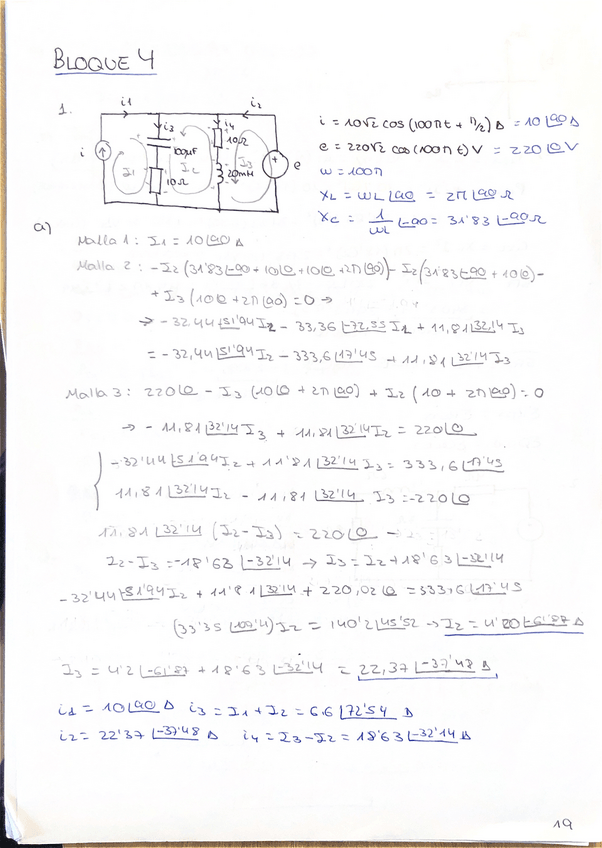 BLOQUE 4
1.
i1
i2
i3
i4
i
100µF
10Ω
10Ω
20mH
e
I1
I2
I3
i = 10√2 cos (100πt + π/2) A = 10∠90 A
e = 220√2 cos (100πt) V = 220∠0 V
ω = 100π
XL = ωL∠90 = 2π∠90 Ω
Xc = 1/ωL ∠-90 = 31'83∠-90 Ω
a)
Malla 1: I1 = 10∠90 A
Malla 2: -I2 (31'83∠-90 + 10∠0 + 10∠0 + 2π∠90) - I2 (31'83∠-90 + 10∠0) -
+ I3 (10∠0 + 2π∠90) = 0 →
→ -32.44∠-51'94 I2 - 33,36∠-72,55 I1 + 11,81∠32,14 I3
= -32,44∠-51'94 I2 - 333,6∠17'45 + 11,81∠32'14 I3
Malla 3: 220∠0 - I3 (10∠0 + 2π∠90) + I2 (10 + 2π∠90) = 0
→ - 11,81∠32'14 I3 + 11,81∠32'14 I2 = 220∠0
-32'44∠-51'94 I2 + 11,81∠32'14 I3 = 333,6∠17'45
11,81∠32'14 I2 - 11,81∠32'14 I3 = -220∠0
11,81∠32'14 (I2 - I3) = 220∠0 -
I2 - I3 = -18'63∠-32'14 → I3 = I2 + 18'63∠-32'14
-32'44∠-51'94 I2 + 11'81∠32'14 + 220,02∠0 = 333,6∠17'45
(33'35∠109'4) I2 = 140'2∠45'52 → I2 = 4'20∠-61'87 A
I3 = 4'2∠-61'87 + 18'63∠-32'14 = 22,37∠-37'48 A
i1 = 10∠90 A i3 = I1 + I2 = 6.6∠72'54 A
i2 = 22'37∠-37'48 A i4 = I3 - I2 = 18'63∠-32'14 A
19